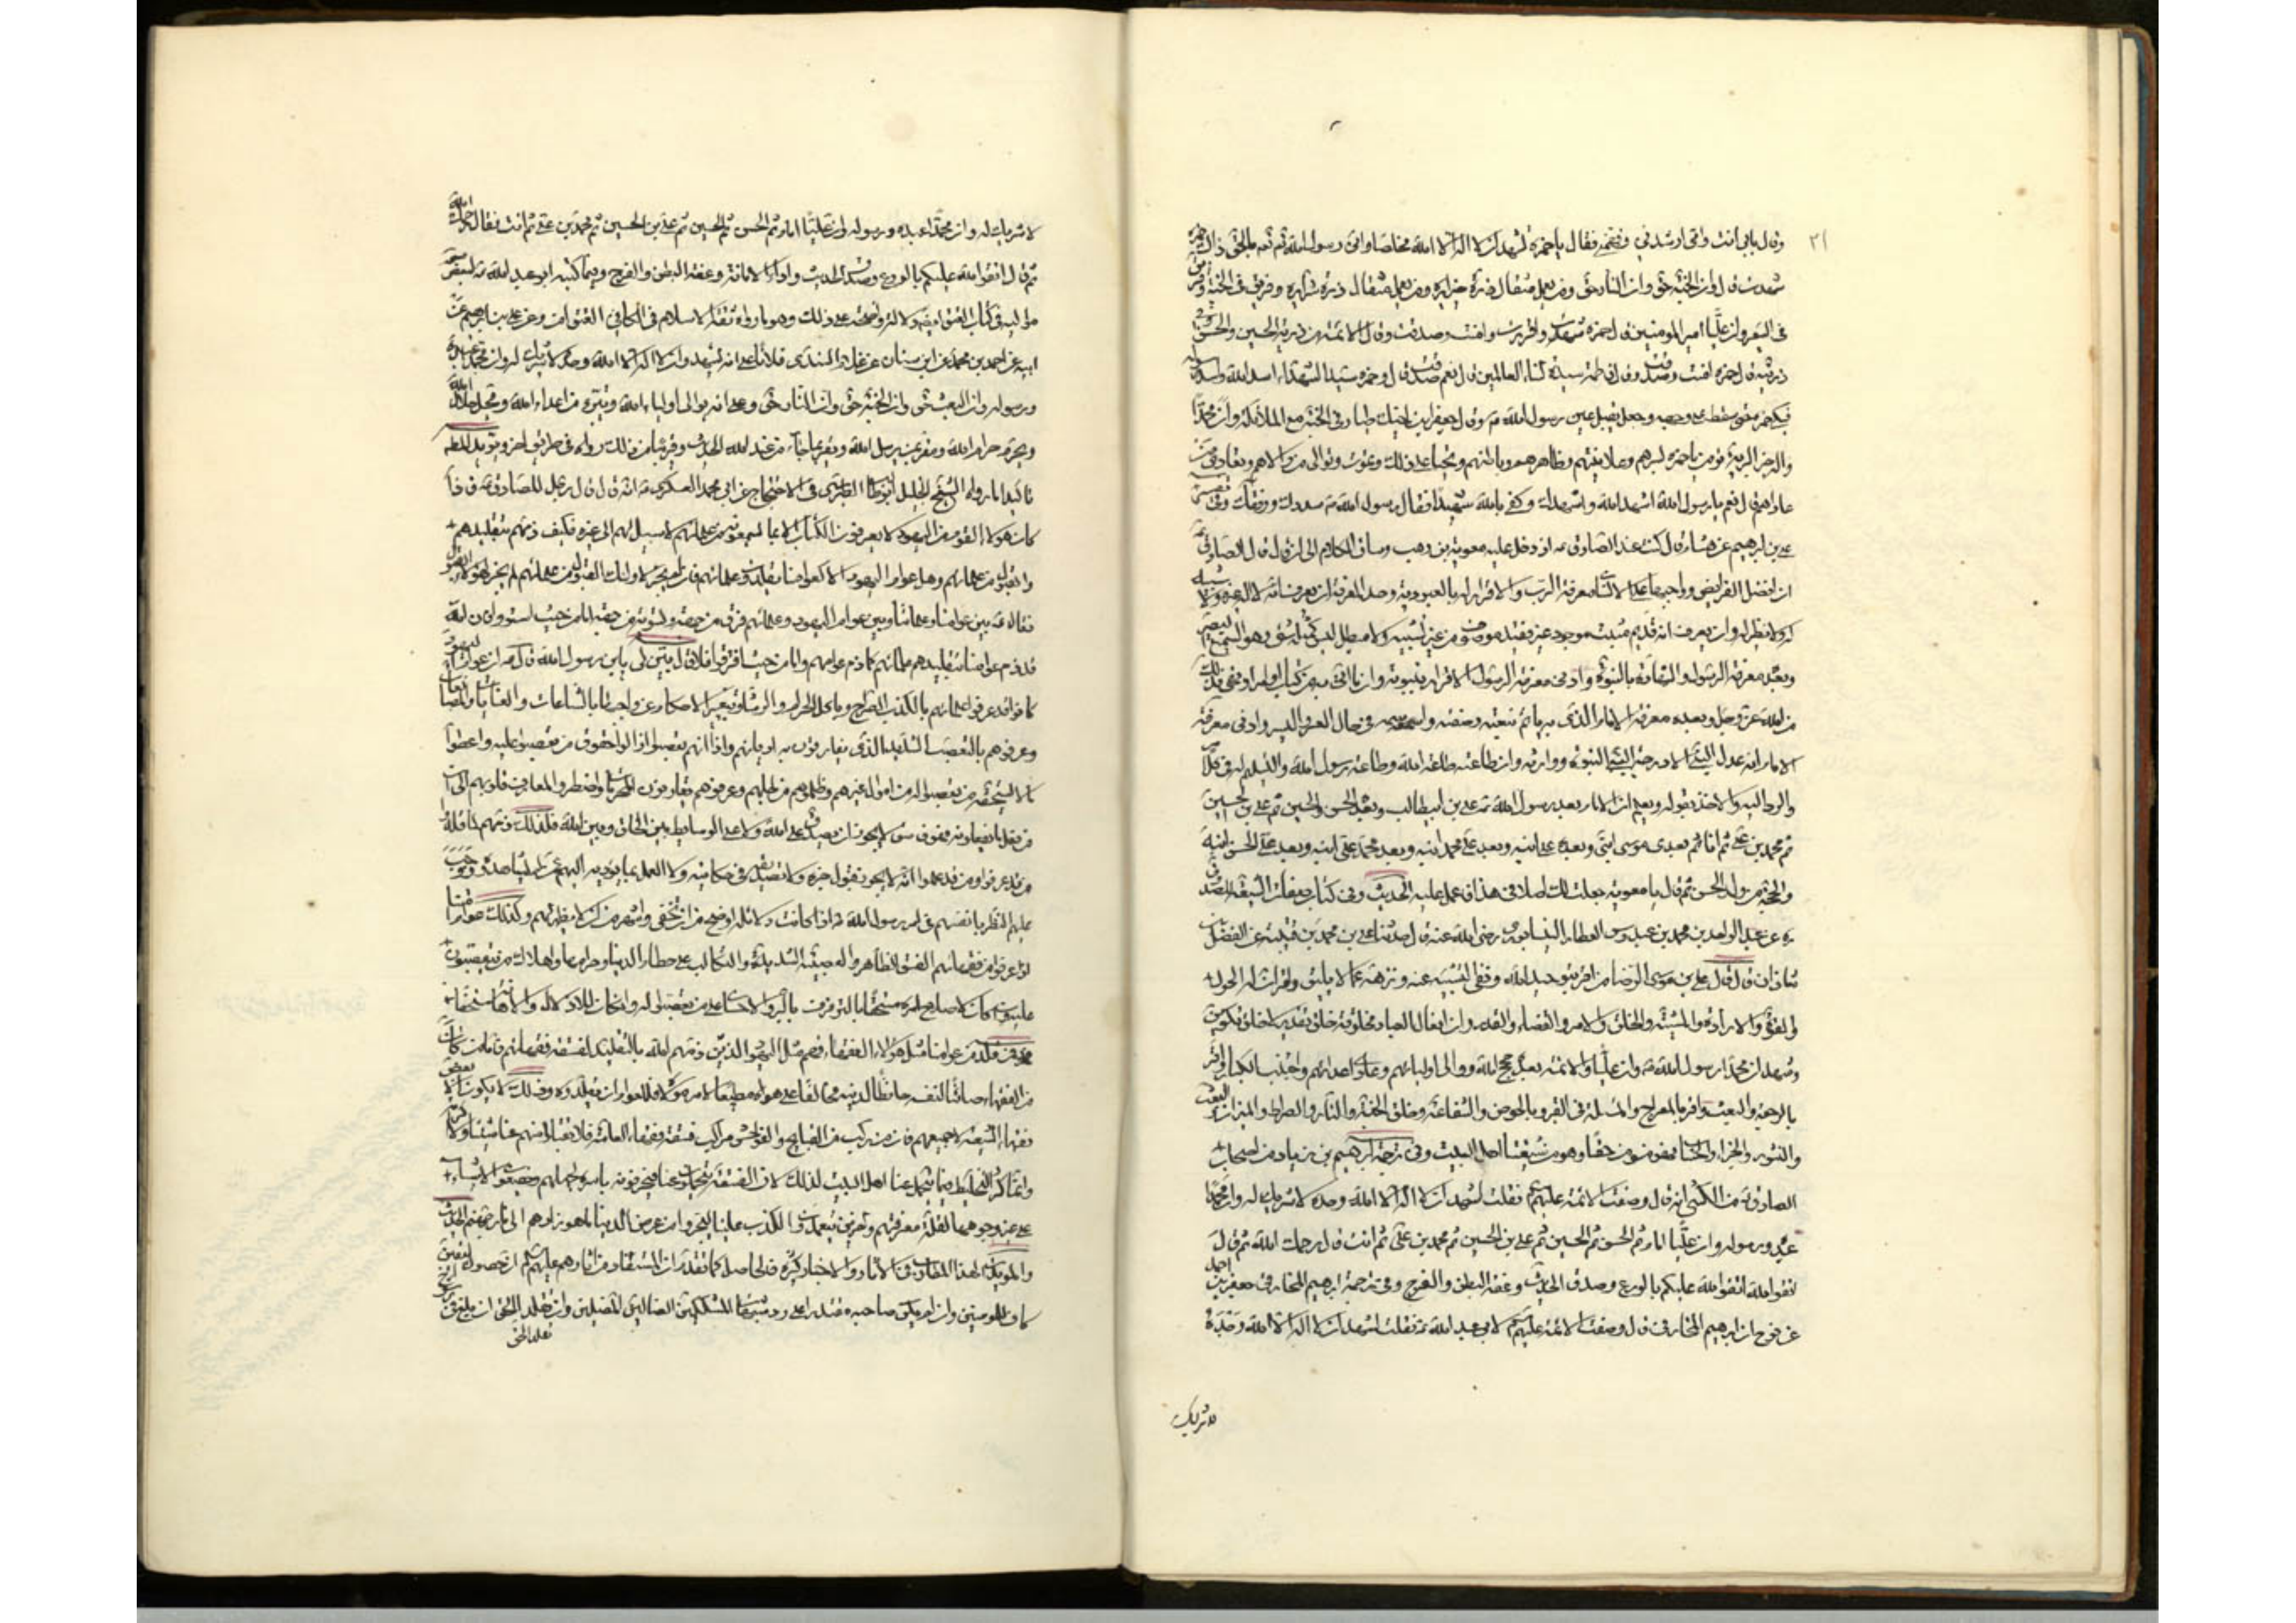 ٣١
وقال بابي انت وامي ارشدني وفهمني فقال يا حمزة تشهد ان لا اله الا الله مخلصا واني رسول الله ثم نعم بالحق ذلك حمزة
شهدت قال وان الجنة حق وان النار حق ومن يعمل مثقال ذرة خيرا يره ومن يعمل مثقال ذرة شرا يره وفريق في الجنة وفريق
في السعير وان عليا امير المؤمنين قال حمزة شهدت واقررت وامنت وصدقت وقال الائمة من ذريته الحسين والحسن وفي
ذريته قال حمزة امنت وصدقت وقال فاطمة سيدة نساء العالمين قال نعم صدقت قال وحمزة سيد الشهداء واسد الله واسد رسوله
فبكى حمزة حتى سقط على وجهه وجعل يقبل عين رسول الله ص وقال جعفر ابن اخيك طيار في الجنة مع الملائكة وان محمدا
واله خير البرية تؤمن يا حمزة بسرهم وعلانيتهم وظاهرهم وباطنهم وتحيا على ذلك وتموت وتوالي من والاهم وتعادي من
عاداهم قال نعم يا رسول الله اشهد الله واشهدك وكفى بالله شهيدا فقال رسول الله ص سددك ووفقك وفي تفسير
علي بن ابرهيم عن هشام قال كنت عند الصادق ع اذ دخل عليه معوية بن وهب وساق الكلام الى ان قال قال الصادق ع
ان افضل الفرايض واوجبها على الانسان معرفة الرب والاقرار له بالعبودية وحد المعرفة ان يعرف انه لا اله غيره ولا شبيه
له ولا نظير له وان يعرف انه قديم مثبت موجود غير فقيد موصوف من غير شبيه ولا مبطل ليس كمثله شيء وهو السميع البصير
وبعده معرفة الرسول والشهادة بالنبوة وادنى معرفة الرسول الاقرار بنبوته وان ما اتى به من كتاب او امر او نهي فذلك
من الله عز وجل وبعده معرفة الامام الذي به ياتم بنعته وصفته واسمه في حال العسر واليسر وادنى معرفة
الامام انه عدل النبي الا درجة النبوة ووارثه وان طاعته طاعة الله وطاعة رسول الله والتسليم له في كل
والرد اليه والاخذ بقوله ويعلم ان الامام بعد رسول الله ص علي بن ابيطالب وبعده الحسن والحسين ثم علي بن الحسين
ثم محمد بن علي ثم انا ثم بعدي موسى ابني وبعده علي ابنه وبعد علي محمد ابنه وبعد محمد علي ابنه وبعد علي الحسن ابنه
والحجة من ولد الحسن ثم قال يا معوية جعلت لك اصلا في هذا فاعمل عليه الحديث وفي كتاب صفات الشيعة للصدوق
ره عن عبد الواحد بن محمد بن عبدوس العطار النيسابوري رضي الله عنه قال حدثنا علي بن محمد بن قتيبة عن الفضل بن
شاذان قال قال علي بن موسى الرضا من اقر بتوحيد الله ونفى التشبيه عنه ونزهه عما لا يليق واقر ان له الحول
والقوة والارادة والمشية والخلق والامر والقضاء والقدر وان افعال العباد مخلوقة خلق تقدير لا خلق تكوين
وشهد ان محمدا رسول الله ص وان عليا والائمة بعده حجج الله ووالى اوليائهم وعادى اعدائهم واجتنب الكبائر واقر
بالرجعة والمتعتين واقر بالمعراج والمسئلة في القبر وبالحوض والشفاعة وخلق الجنة والنار والصراط والميزان والبعث
والنشور والجزاء والحساب فهو مؤمن حقا وهو من شيعتنا اهل البيت وفي ترجمة ابرهيم بن زياد من اصحاب
الصادق ع من الكشي انه قال وصفت الائمة عليهم فقلت اشهد ان لا اله الا الله وحده لا شريك له وان محمدا
عبده ورسوله وان عليا امام ثم الحسن ثم الحسين ثم علي بن الحسين ثم محمد بن علي ثم انت قال رحمك الله ثم قال
اتقوا الله اتقوا الله عليكم بالورع وصدق الحديث وعفة البطن والفرج وفي ترجمة ابرهيم المخارقي جعفر بن احمد
عن نوح ان ابرهيم المخارقي قال وصفت الائمة عليهم لابي عبد الله ع فقلت اشهد ان لا اله الا الله وحده
لا شريك
لا شريك له وان محمدا عبده ورسوله وان عليا امام ثم الحسن ثم الحسين ثم علي بن الحسين ثم محمد بن علي ثم انت فقال رحمك الله
ثم قال اتقوا الله عليكم بالورع وصدق الحديث واداء الامانة وعفة البطن والفرج وفيما كتبه ابو عبد الله
ابيه عن احمد بن محمد عن ابن سنان عن فلانا على انه يشهد ان لا اله الا الله وحده لا شريك له وان محمدا عبده
ورسوله وان البعث حق وان الجنة حق وان النار حق وعلى انه يوالي اولياء الله ويتبرء من اعداء الله ويحل حلال الله
ويحرم حرام الله ومقر برسل الله ويقر بما جاء من عند الله الحديث وقريبا من ذلك رواه في طريق اخر
تاكيدا ما رواه الشيخ الجليل الطبرسي في الاحتجاج عن ابي محمد العسكري ع انه قال قال رجل للصادق ع فاذا
كان هؤلاء القوم من اليهود لا يعرفون الكتاب الا بما يسمعونه من علمائهم لا سبيل لهم الى غيره فكيف ذمهم بتقليدهم
والقبول من علمائهم وهل عوام اليهود الا كعوامنا يقلدون علمائهم فان لم يجز لاولئك القبول من علمائهم لم يجز لهؤلاء القبول
فقال ع بين عوامنا وعلمائنا وبين عوام اليهود وعلمائهم فرق من جهة وتسوية من جهة اما من حيث استووا فان الله
قد ذم عوامنا بتقليدهم علمائهم كما ذم عوامهم واما من حيث افترقوا فلا قال بين لي يابن رسول الله قال ع ان عوام اليهود
كانوا قد عرفوا علمائهم بالكذب الصراح وباكل الحرام والرشاء وبتغيير الاحكام عن واجبها بالشفاعات والعنايات والمصانعات
وعرفوهم بالتعصب الشديد الذي يفارقون به اديانهم وانهم اذا تعصبوا ازالوا حقوق من تعصبوا عليه واعطوا
ما لا يستحقه من تعصبوا له من اموال غيرهم وظلموهم من اجلهم وعرفوهم يقارفون المحرمات واضطروا بمعارف قلوبهم الى ان
من فعل ما يفعلونه فهو فاسق لا يجوز ان يصدق على الله ولا على الوسايط بين الخلق وبين الله فلذلك ذمهم لما قلدوا
من قد عرفوا ومن قد علموا انه لا يجوز قبول خبره ولا تصديقه في حكايته ولا العمل بما يؤديه اليهم عمن لم يشاهدوه ووجب
عليهم النظر بانفسهم في امر رسول الله ص اذا كانت دلائله اوضح من ان تخفى واشهر من ان لا تظهر لهم وكذلك عوام امتنا
اذا عرفوا من فقهائهم الفسق الظاهر والعصبية الشديدة والتكالب على حطام الدنيا وحرامها واهلاك من يتعصبون
عليه وان كان لاصلاح امره مستحقا وبالترفرف بالبر والاحسان على من تعصبوا له وان كان للاذلال والاهانة مستحقا
فمن قلد من عوامنا مثل هؤلاء الفقهاء فهم مثل اليهود الذين ذمهم الله بالتقليد لفسقة فقهائهم فاما من كان
من الفقهاء صائنا لنفسه حافظا لدينه مخالفا على هواه مطيعا لامر مولاه فللعوام ان يقلدوه وذلك لا يكون الا بعض
فقهاء الشيعة لا جميعهم فان من ركب من القبايح والفواحش مراكب فسقة فقهاء العامة فلا تقبلوا منهم عنا شيئا ولا كرامة
وانما كثر التخليط فيما يتحمل عنا اهل البيت لذلك لان الفسقة يتحملون عنا فيحرفونه باسره لجهلهم ويضعون الاشياء
على غير وجوهها لقلة معرفتهم واخرين يتعمدون الكذب علينا ليجروا من عرض الدنيا ما هو زادهم الى نار جهنم الحديث
كاف للمؤمنين وان لم يكن صاحبه مقتدرا على رد شبهات المشككين الضالين المضلين